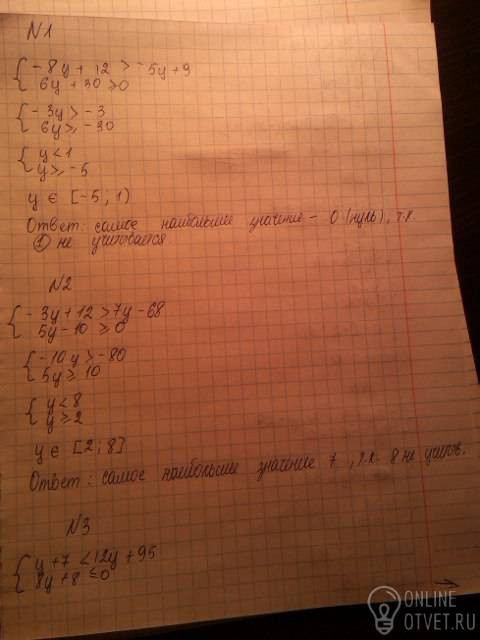 N1
{ -8y + 12 > -5y + 9
6y + 30 ≥ 0
{ -3y > -3
6y ≥ -30
{ y < 1
y ≥ -5
y ∈ [-5; 1)
Ответ: самое наибольшее значение - 0 (нуль), т.к.
① не учитовается
N2
{ -3y + 12 > 7y - 68
5y - 10 ≥ 0
{ -10y > -80
5y ≥ 10
{ y < 8
y ≥ 2
y ∈ [2; 8]
Ответ: самое наибольшее значение 7, т.к. 8 не учитов.
N3
{ y + 7 < 12y + 95
8y + 8 ≤ 0
→
ONLINE
OTVET.RU